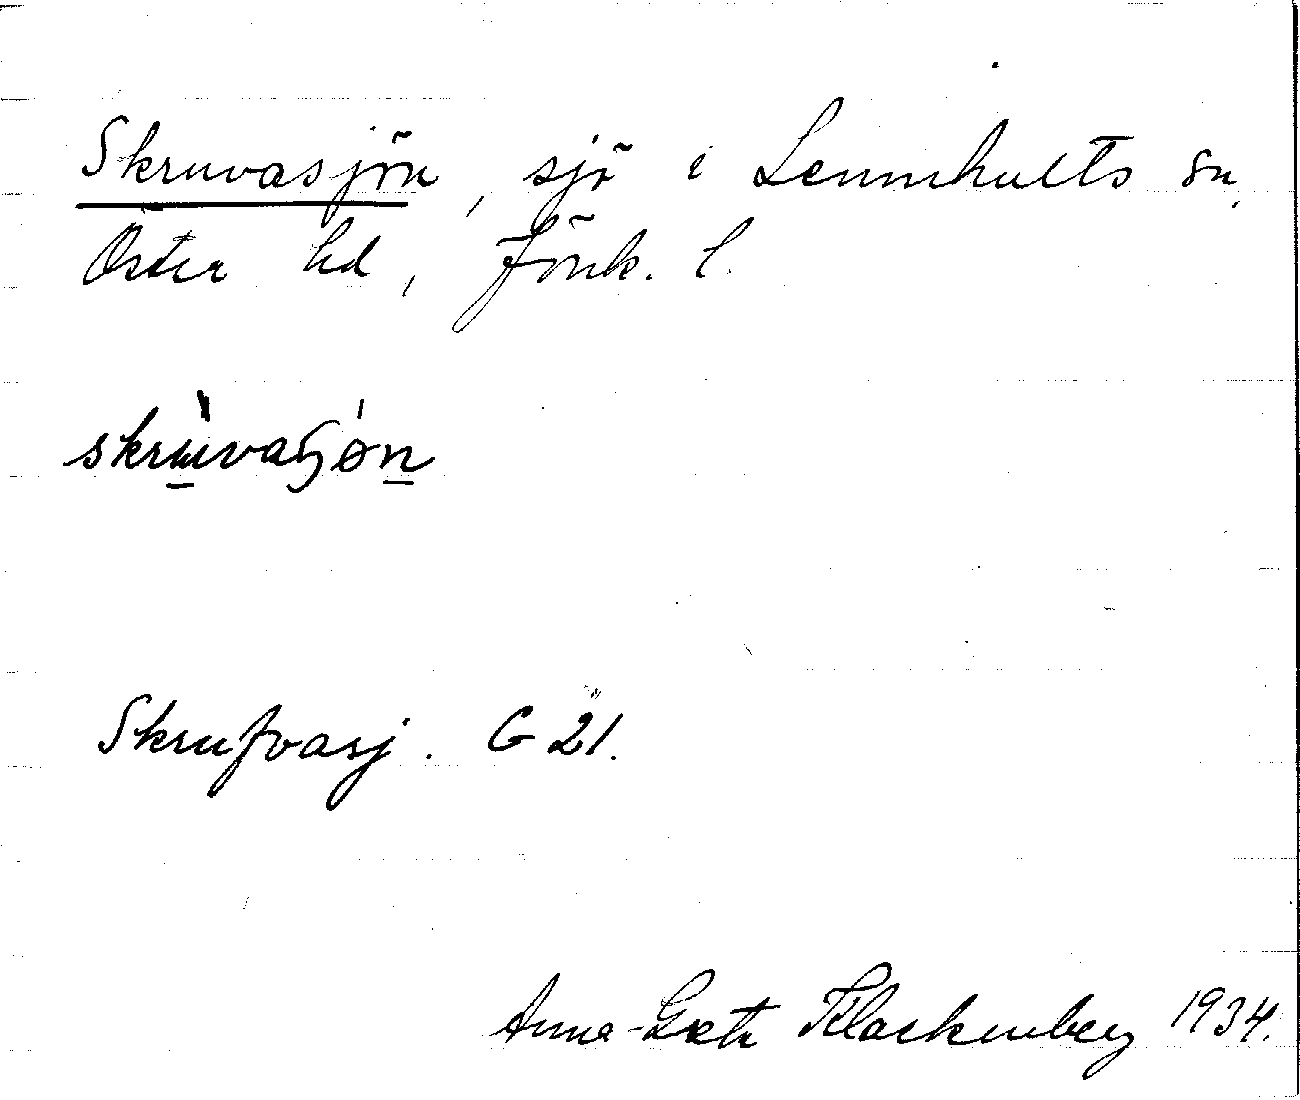 Skruvasjön, sjö i Lemnhults sn,
Öster hd, Jönk. l.
skrùvaʃǿn
Skrufvasj. G 21.
Anna-Greta Klackenberg 1934.